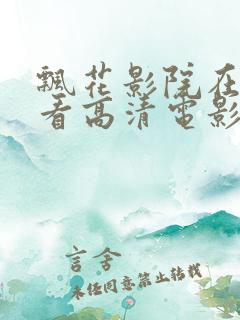 飄花影院在
看高清電影
言舍
未经同意禁止转载